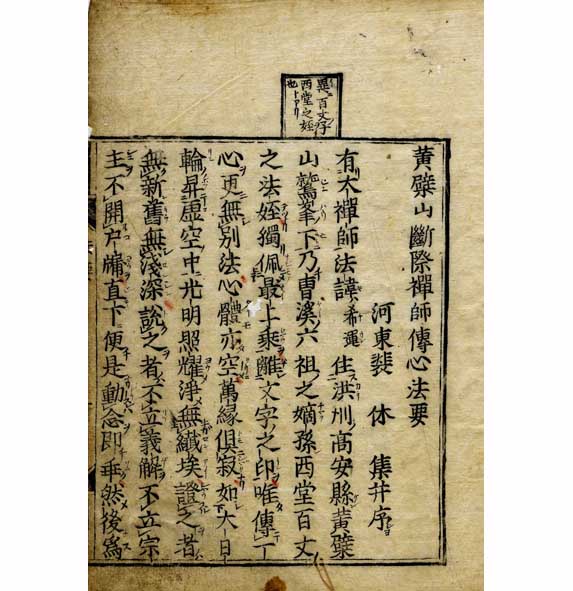 黃檗山斷際禪師傳心法要
河東裴 休 集并序
有大禪師法諱希運住洪州髙安縣黃檗
山鷲峯下乃曹溪六祖之嫡孫西堂百丈
之法姪獨佩最上乘離文字之印唯傳一
心更無別法心體亦空萬緣俱寂如大日
輪昇虛空中光明照耀淨無纖埃證之者
無新舊無淺深說之者不立義解不立宗
主不開户牖直下便是動念即乖然後爲
異百丈子
西堂之姪
也トアリ